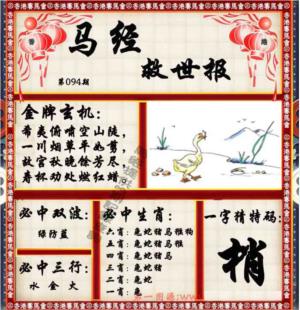 香 港
马经
救世报
第094期
金牌玄机:
希夷俯啸空山陵,
一川烟草平如蓠,
故宫秋晚徐芳尽,
春杯劝处燃红蜡
必中双波:
绿防蓝
必中三行:
水金火
必中生肖:
六肖:兔蛇猪马鸡狗
五肖:兔蛇猪马鸡
四肖:兔蛇猪马
三肖:兔蛇猪
二肖:兔蛇
一肖:兔
一字猜特码:
梢